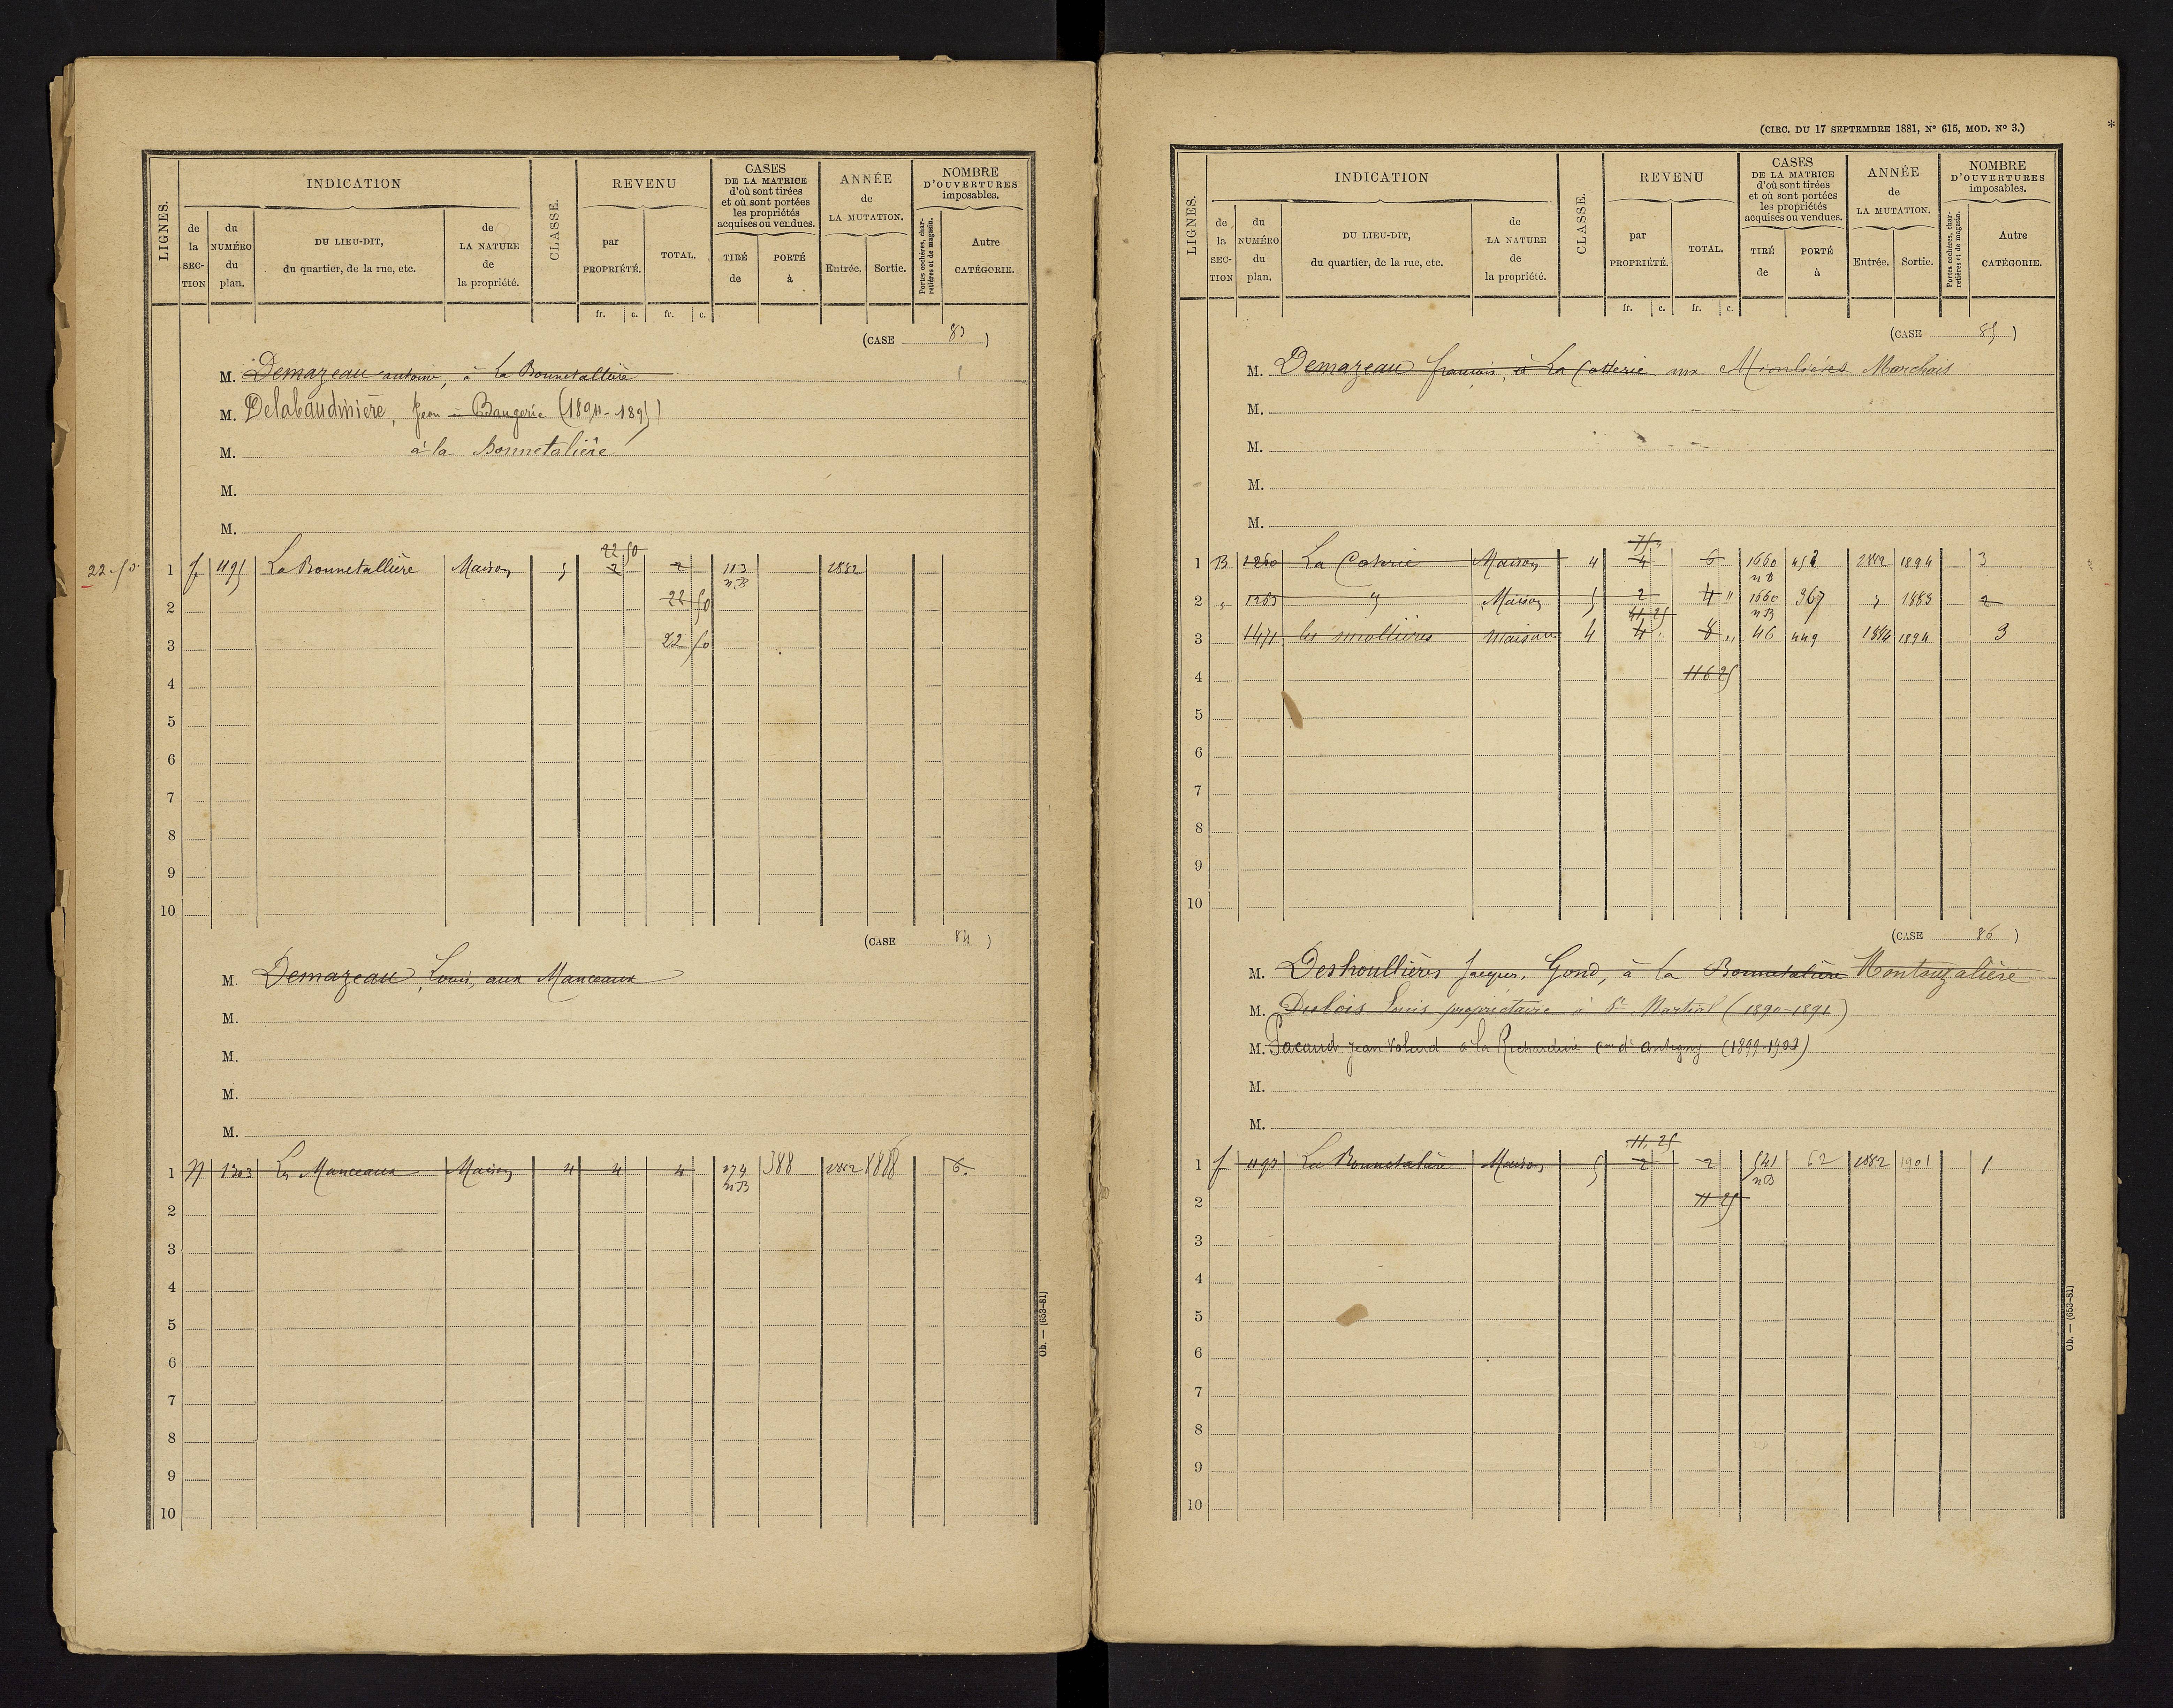 LIGNES.
INDICATION
de la SECTION
du NUMÉRO du plan.
DU LIEU-DIT, du quartier, de la rue, etc.
de LA NATURE de la propriété.
CLASSE.
REVENU
par PROPRIÉTÉ.
TOTAL.
CASES DE LA MATRICE d'où sont tirées et où sont portées les propriétés acquises ou vendues.
TIRÉ de
PORTÉ à
ANNÉE de LA MUTATION.
Entrée.
Sortie.
NOMBRE D'OUVERTURES imposables.
Portes cochères, charretières et de magasin.
Autre CATÉGORIE.
fr. c. fr. c.
(CASE 83)
M. Demazeau antoine, à La Bonnetallière
M. Delabaudinière, Jean à Baugerie (1894-1895)
M. à la Bonnetalière
M.
M.
22 50
22.50 1 f 1195 La Bonnetallière Maison 5 2 2 113 1882
n.B
2 22 50
3 22 50
4
5
6
7
8
9
10
(CASE 84)
M. Demazeau, Louis, aux Manceaux
M.
M.
M.
M.
1 1303 Les Manceaux Maison 4 4 4 274 388 1882 1888 6.
n B
2
3
4
5
6
7
8
9
10
Ob. — (653-81)
(CIRC. DU 17 SEPTEMBRE 1881, N° 615, MOD. N° 3.)
*
LIGNES.
INDICATION
de la SECTION
du NUMÉRO du plan.
DU LIEU-DIT, du quartier, de la rue, etc.
de LA NATURE de la propriété.
CLASSE.
REVENU
par PROPRIÉTÉ.
TOTAL.
CASES DE LA MATRICE d'où sont tirées et où sont portées les propriétés acquises ou vendues.
TIRÉ de
PORTÉ à
ANNÉE de LA MUTATION.
Entrée.
Sortie.
NOMBRE D'OUVERTURES imposables.
Portes cochères, charretières et de magasin.
Autre CATÉGORIE.
fr. c. fr. c.
(CASE 85)
M. Demazeau françois, à La Cotterie aux Marchais
M.
M.
M.
M.
75 "
1 B 1260 La Maison 4 4 6 1660 1882 1894 3
n B
2 " 1263 " Maison 5 2 4 " 1660 367 " 1883 2
41 25 n B
3 1471 les maison 4 4 8 " 46 449 1884 1894 3
4 116 25
5
6
7
8
9
10
(CASE 86)
M. Deshoullières Jacques, Gond, à la Bonnetalière Montouzalière
M. Dubois Louis propriétaire à St Martial (1890-1891)
M. Pacaud Jean à la Richardière Cne d'Antigny
M.
M.
11. 25
1 f La Bonnetalière Maison 5 2 2 541 62 1882 1901 1
n B
2 11 25
3
4
5
6
7
8
9
10
Ob. — (653-81)